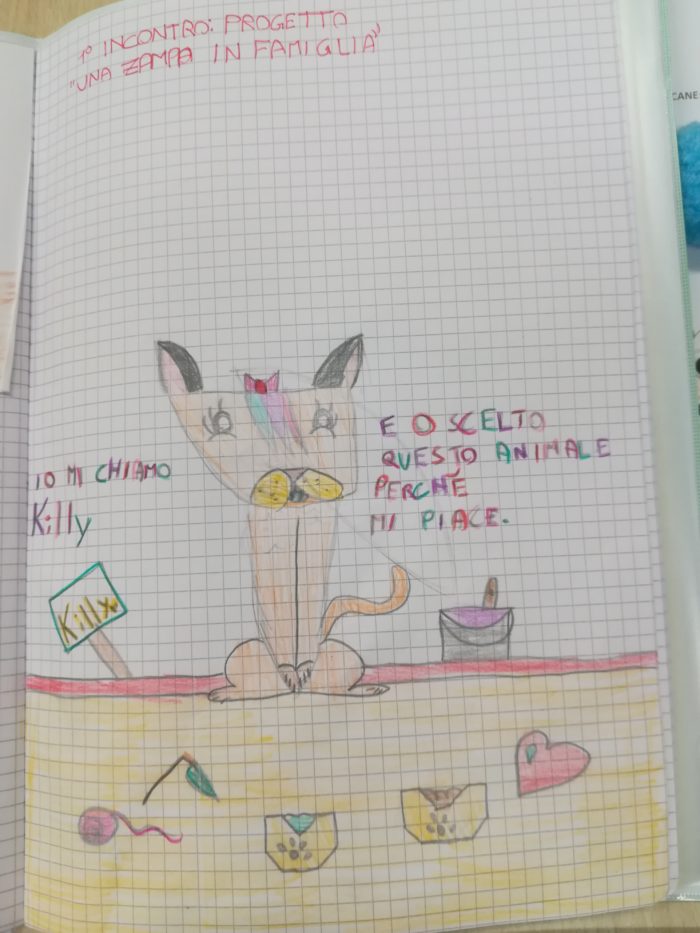 1° INCONTRO: PROGETTO
"UNA ZAMPA IN FAMIGLIA"
CANE
IO MI CHIAMO
Killy
E O SCELTO
QUESTO ANIMALE
PERCHÉ
MI PIACE.
Killy